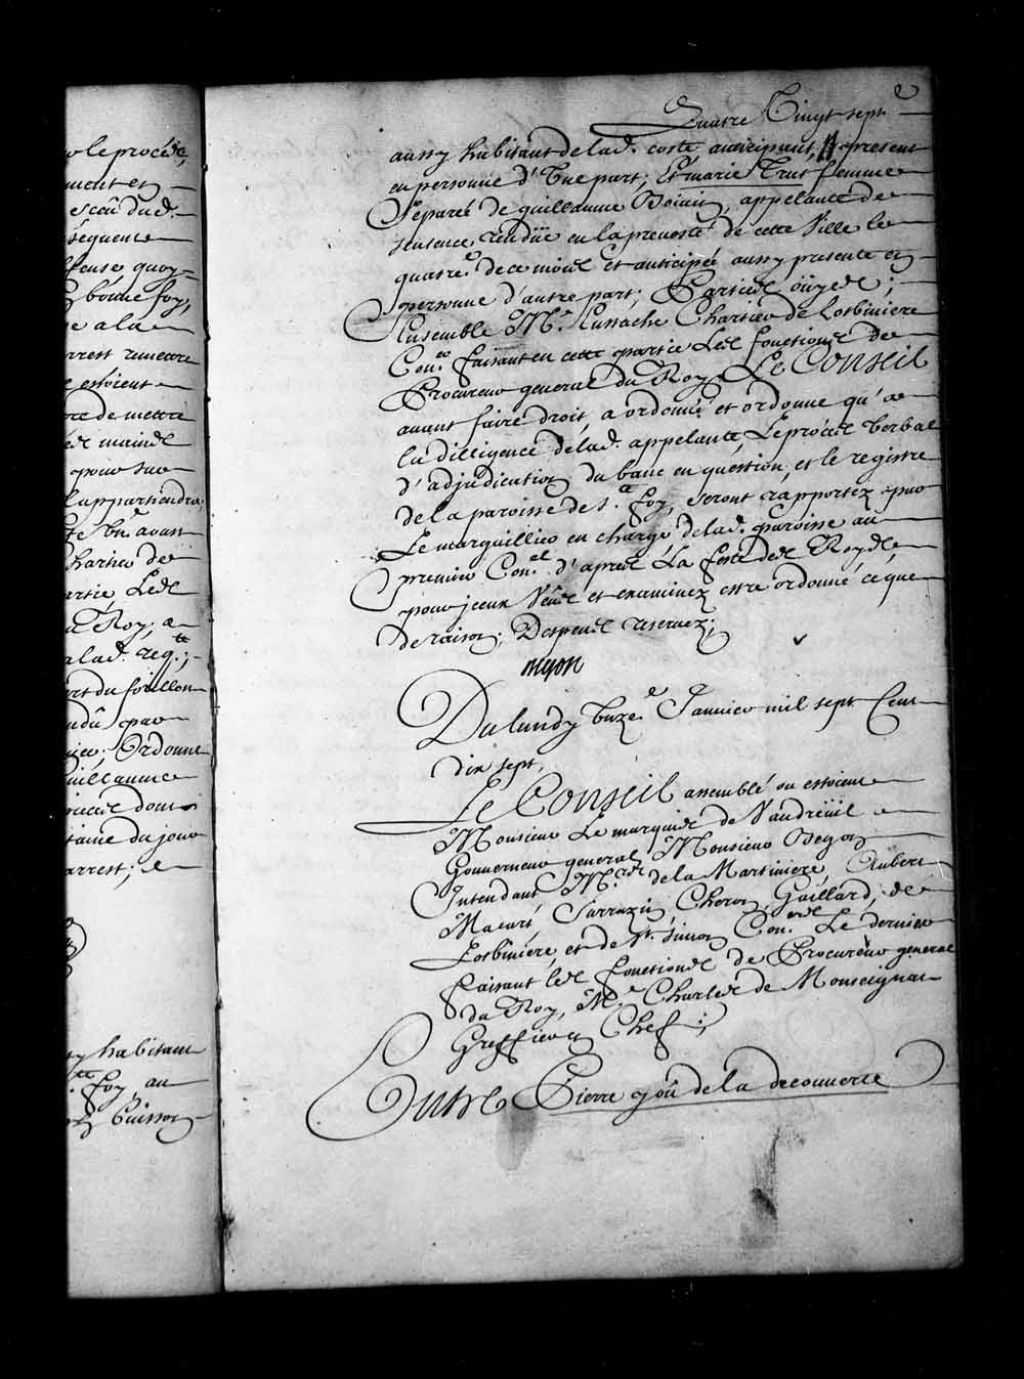 o le procés,
ment et
es cou du d.
sequence
fense quoy=
bonne foy,
e a la
arrest remettre
estoient
de mettre
es mains
pour sur
l'appartiendra;
avant
hartier de
artie Les
u Roy, a
a lad. req.te;
rt du foüllon
ndu par
Ordonne
uillaume
cés dont
taine du jour
arrest; /.
y habitant
foy, au
Buisson
Quatre Vingt sept
aussy habitant de lad. coste anticipant, present
en personne d'Une part; Et marie Trut femme
Separée de guillaume Boivin appelante de
sentence rendüe en la prevosté de cette Ville le
quatre.e de ce mois et anticipée aussy presente en
personne d'autre part; Parties oüyes;
Ensemble M.e Eustache Chartier de Lotbiniere
Con.er faisant en cette partie Les fonctions de
Procureur general du Roy; Le Conseil
avant faire droit, a ordonné et ordonne qu'a
la dilligence de lad. appelante, Le procés Verbal
d'adjudication du banc en question, et le registre
de la paroisse de S.te foy, seront rapportez par
Le marguillier en charge de lad. paroisse au
premier Con.el d'aprés La feste des Roys,
pour jceux Veus et examinez estre ordonné ce que
de raison; Despens reservez;
Begon
Du lundy Unze.e Janvier mil sept Cent
dix sept,
Le Conseil assemblé ou estoient
Monsieur Le marquis de Vaudreüil
Gouverneur general, Monsieur Begon
Intendant, M.rs de la Martiniere, Aubert
Macart, Sarrazin Cheron, Gaillard, de
Lotbiniere, et de S.t Simon Con.ers Le dernier
faisant les fonctions de Procureur general
du Roy, M.e Charles de Monseignat
Greffier en Chef;
Entre Pierre you de la decouverte